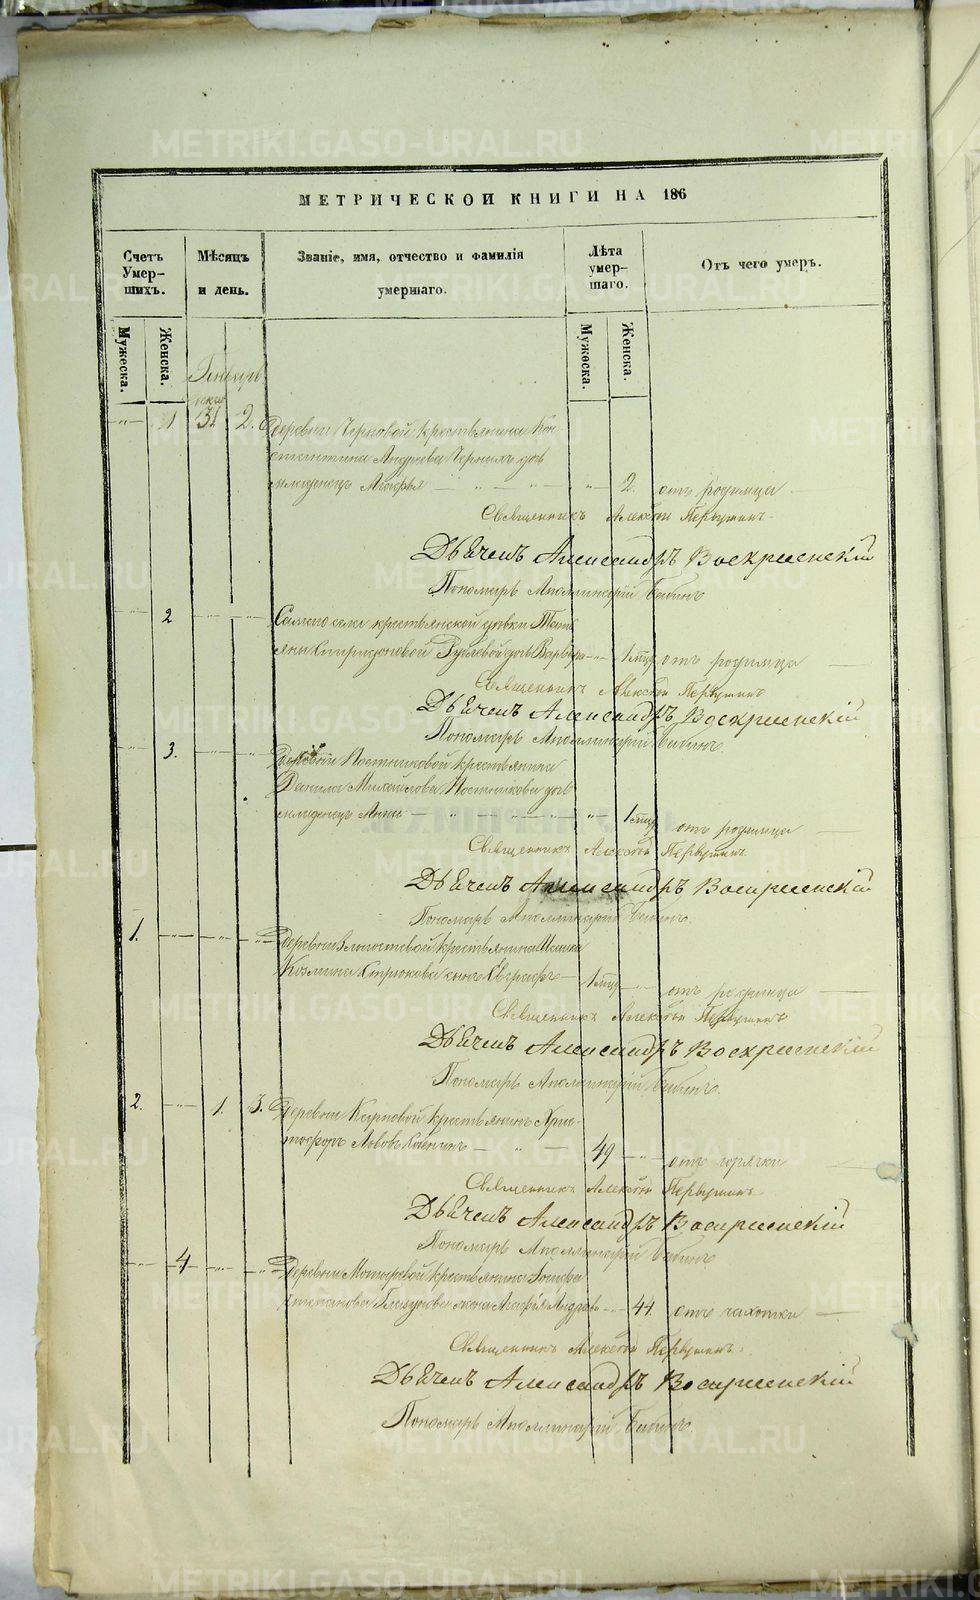 МЕТРИЧЕСКОЙ КНИГИ НА 186
Счетъ Умер-шихъ.
Мѣсяцъ и день.
Званіе, имя, отчество и фамилія умершаго.
Лѣта умер-шаго.
Отъ чего умеръ.
Мужеска.
Женска.
Мужеска.
Женска.
Генварь
1 31 2. Деревни Черновой крестьянина Кон
стантина Андреева Черныхъ дочь
младенецъ Агафья 2. отъ родимца
Священникъ Алексѣй Первушинъ
Дьячекъ Александръ Воскресенскій
Пономарь Аполлинарій Бабинъ
2 Самаго села крестьянской дѣвки Тать
яны Спиридоновой дочь Варвара 1 мѣц. отъ родимца
Священникъ Алексѣй Первушинъ
Дьячекъ Александръ Воскресенскій
Пономарь Аполлинарій Бабинъ
3. Деревни Постниковой крестьянина
Данила Михайлова Постникова дочь
младенецъ Анна 1 мѣц. отъ родимца
Священникъ Алексѣй Первушинъ
Дьячекъ Александръ Воскресенскій
Пономарь Аполлинарій Бабинъ
1. Деревни крестьянина
Козмина сынъ Евграфъ 1 мѣц. отъ родимца
Священникъ Алексѣй Первушинъ
Дьячекъ Александръ Воскресенскій
Пономарь Аполлинарій Бабинъ
2. 1. 3. Деревни крестьянинъ Хрис
тофоръ Львовъ 49 отъ горячки
Священникъ Алексѣй Первушинъ
Дьячекъ Александръ Воскресенскій
Пономарь Аполлинарій Бабинъ
4 Деревни крестьянина
Степанова Глазунова жена 44. отъ чахотки
Священникъ Алексѣй Первушинъ
Дьячекъ Александръ Воскресенскій
Пономарь Аполлинарій Бабинъ
METRIKI.GASO-URAL.RU